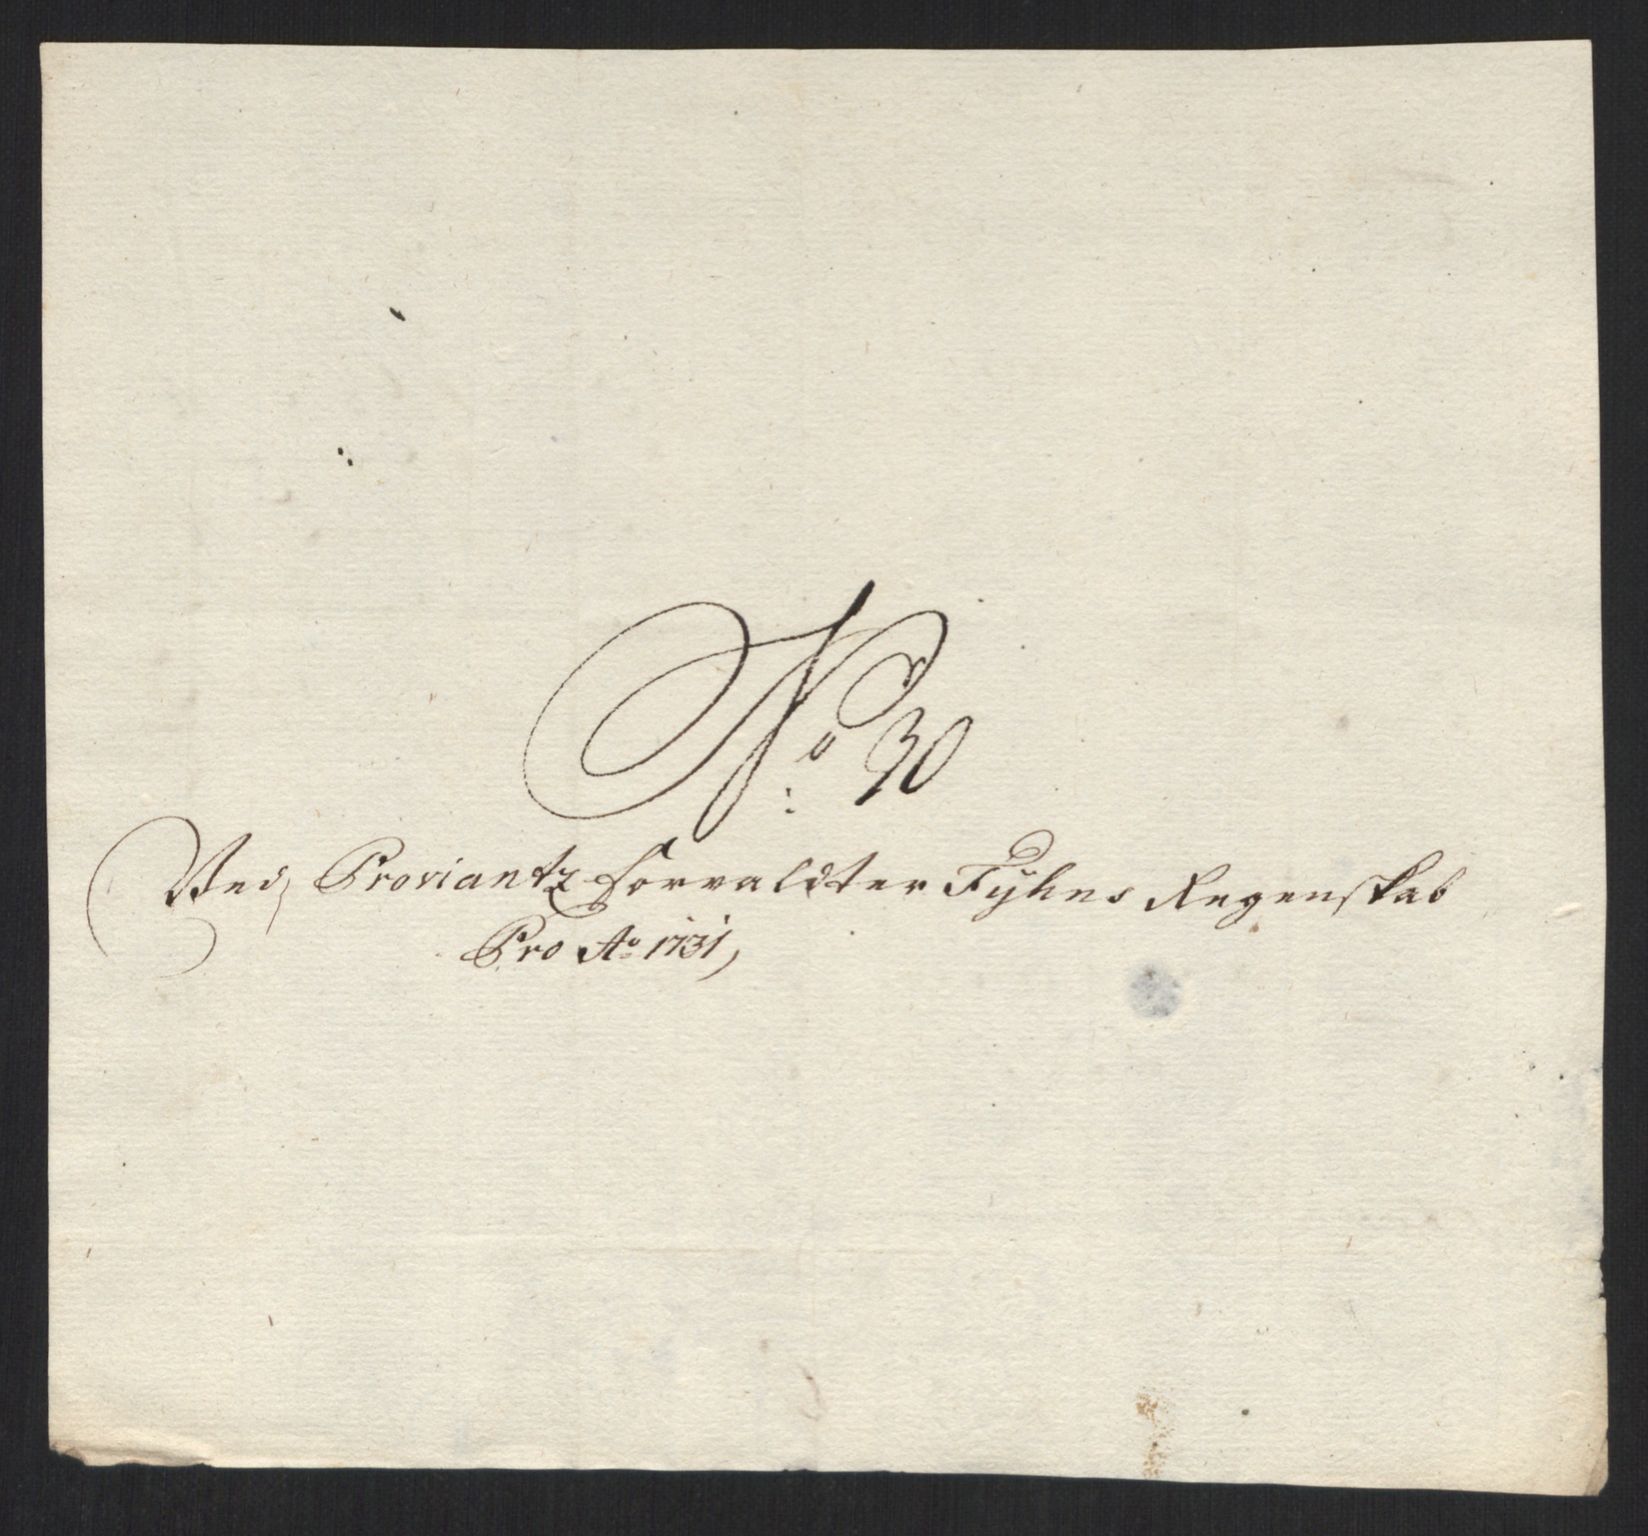 No: 30
Ved Proviantz forvaldter Fyhns Regenskab
Pro Ao 1731,